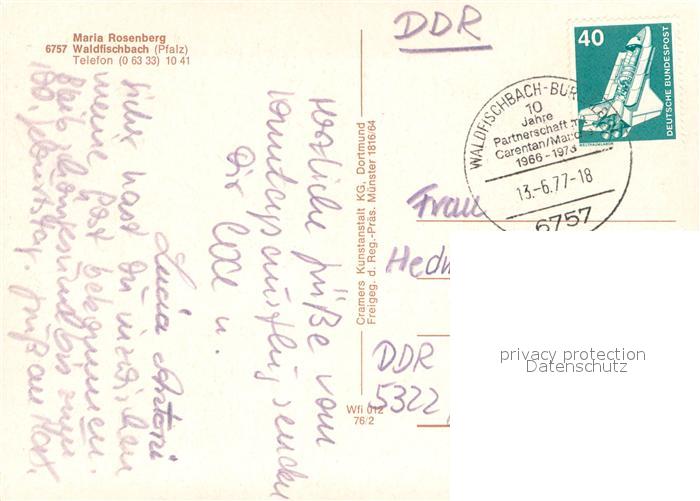 Maria Rosenberg
6757 Waldfischbach (Pfalz)
Telefon (0 63 33) 10 41
DDR
40
DEUTSCHE BUNDESPOST
WELTRAUMLABOR
WALDFISCHBACH-BUR
10
Jahre
Partnerschaft
Carentan/
1966-1976
13.-6.77-18
6757
Herzliche Grüße vom
Sonntagsausflug senden
Dir
u.
Lucia
sicher hast Du inzwischen
meine Post bekommen.
Bleib
bis zum
100. Geburtstag. Gruß an
Cramers Kunstanstalt KG, Dortmund
Freigeg. d. Reg.-Präs. Münster 1816/64
Wfi 012
76/2
Frau
Hedw
DDR
5322
privacy protection
Datenschutz